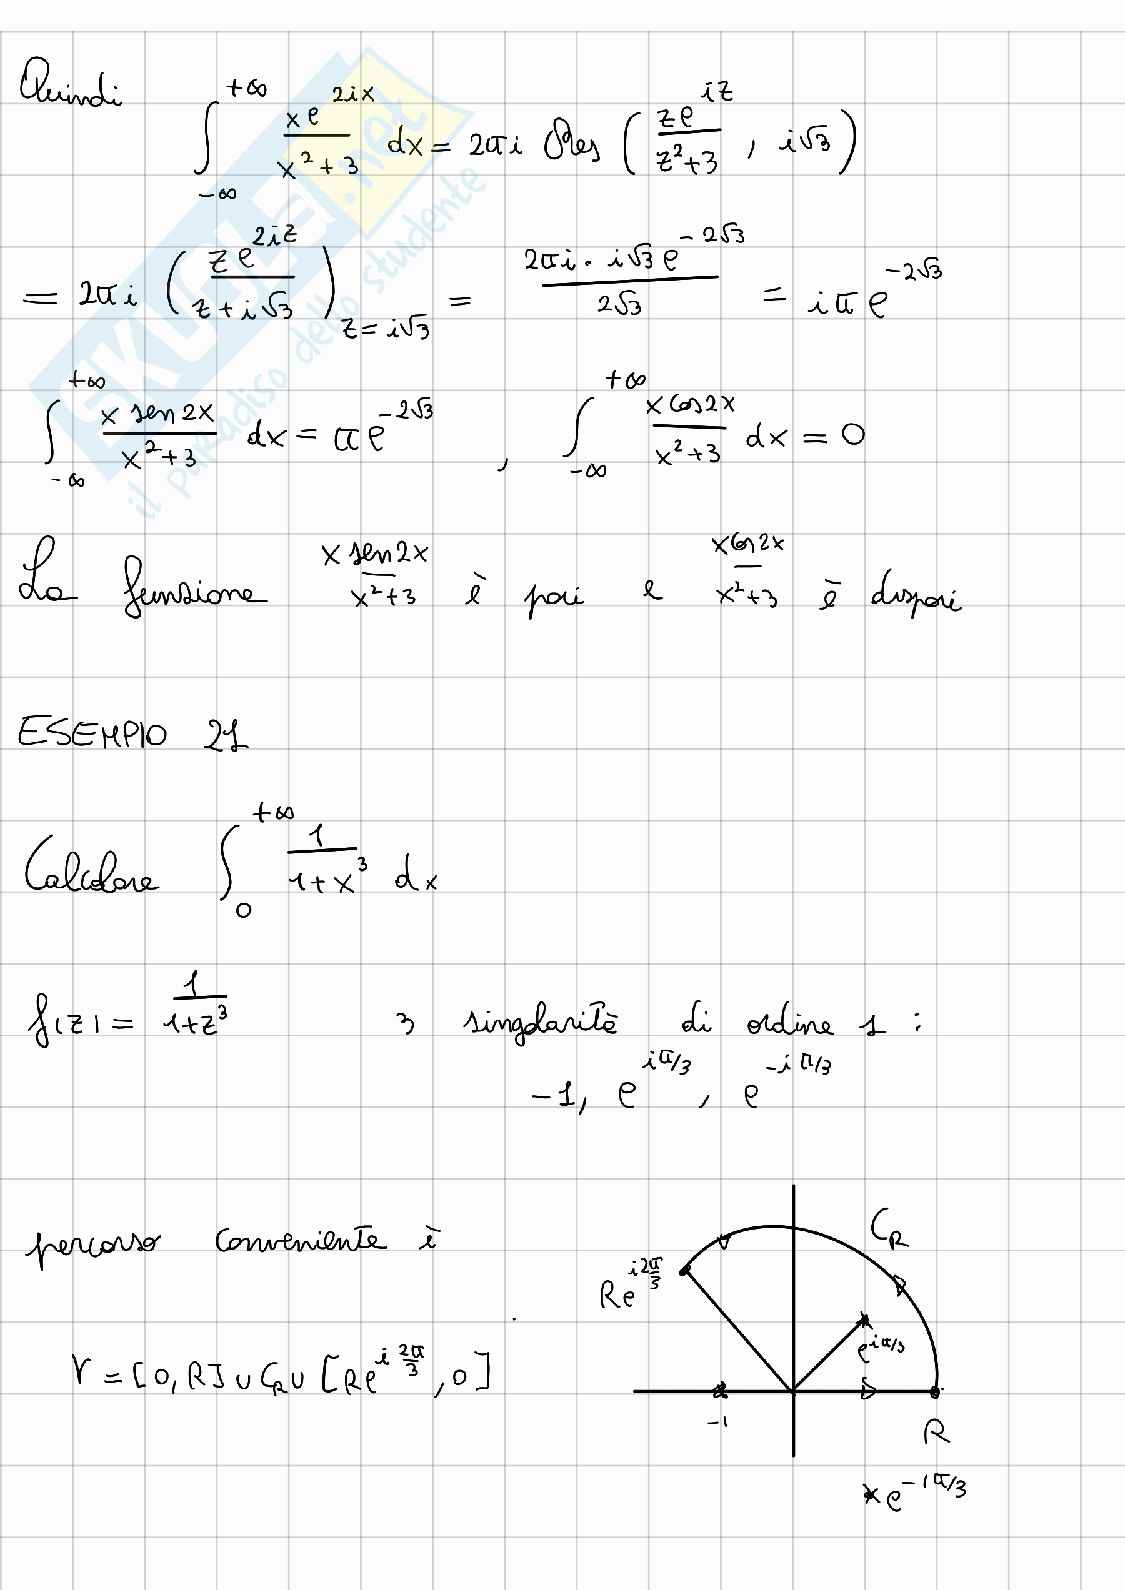 Quindi ∫_{-∞}^{+∞} \frac{x e^{2ix}}{x^2+3} dx = 2πi Res ( \frac{z e^{iz}}{z^2+3} , i√3 )
= 2πi ( \frac{z e^{2iz}}{z+i√3} )_{z=i√3} = \frac{2πi · i√3 e^{-2√3}}{2√3} = iπ e^{-2√3}
∫_{-∞}^{+∞} \frac{x sen2x}{x^2+3} dx = π e^{-2√3} , ∫_{-∞}^{+∞} \frac{x cos2x}{x^2+3} dx = 0
La funzione \frac{x sen2x}{x^2+3} è pari e \frac{x cos2x}{x^2+3} è dispari
ESEMPIO 21
Calcolare ∫_0^{+∞} \frac{1}{1+x^3} dx
f(z) = \frac{1}{1+z^3} 3 singolarità di ordine 1 :
-1, e^{iπ/3} , e^{-iπ/3}
percorso conveniente è
γ = [0, R] ∪ C_R ∪ [Re^{i\frac{2π}{3}}, 0]
C_R
Re^{i\frac{2π}{3}}
e^{iπ/3}
-1
R
e^{-iπ/3}
SKUOLA.net
il paradiso dello studente